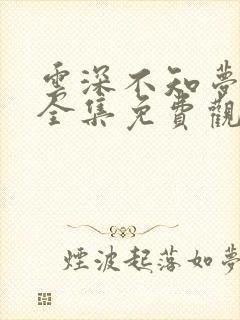 雲深不知夢
全集免費觀
煙波起落如夢